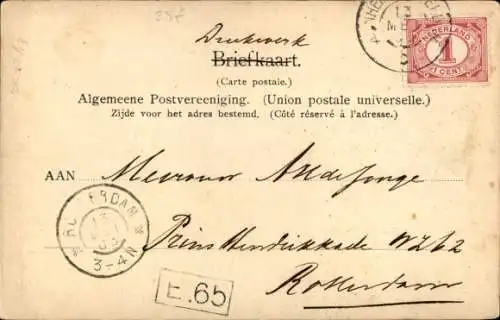 Drukwerk
Briefkaart.
(Carte postale.)
NEDERLAND
1
1 CENT
Algemeene Postvereeniging. (Union postale universelle.)
Zijde voor het adres bestemd. (Côté réservé à l'adresse.)
AAN Mevrouw A de Jonge
Prins Hendrikkade
Rotterdam
ROTTERDAM
13
3-4N
E.65